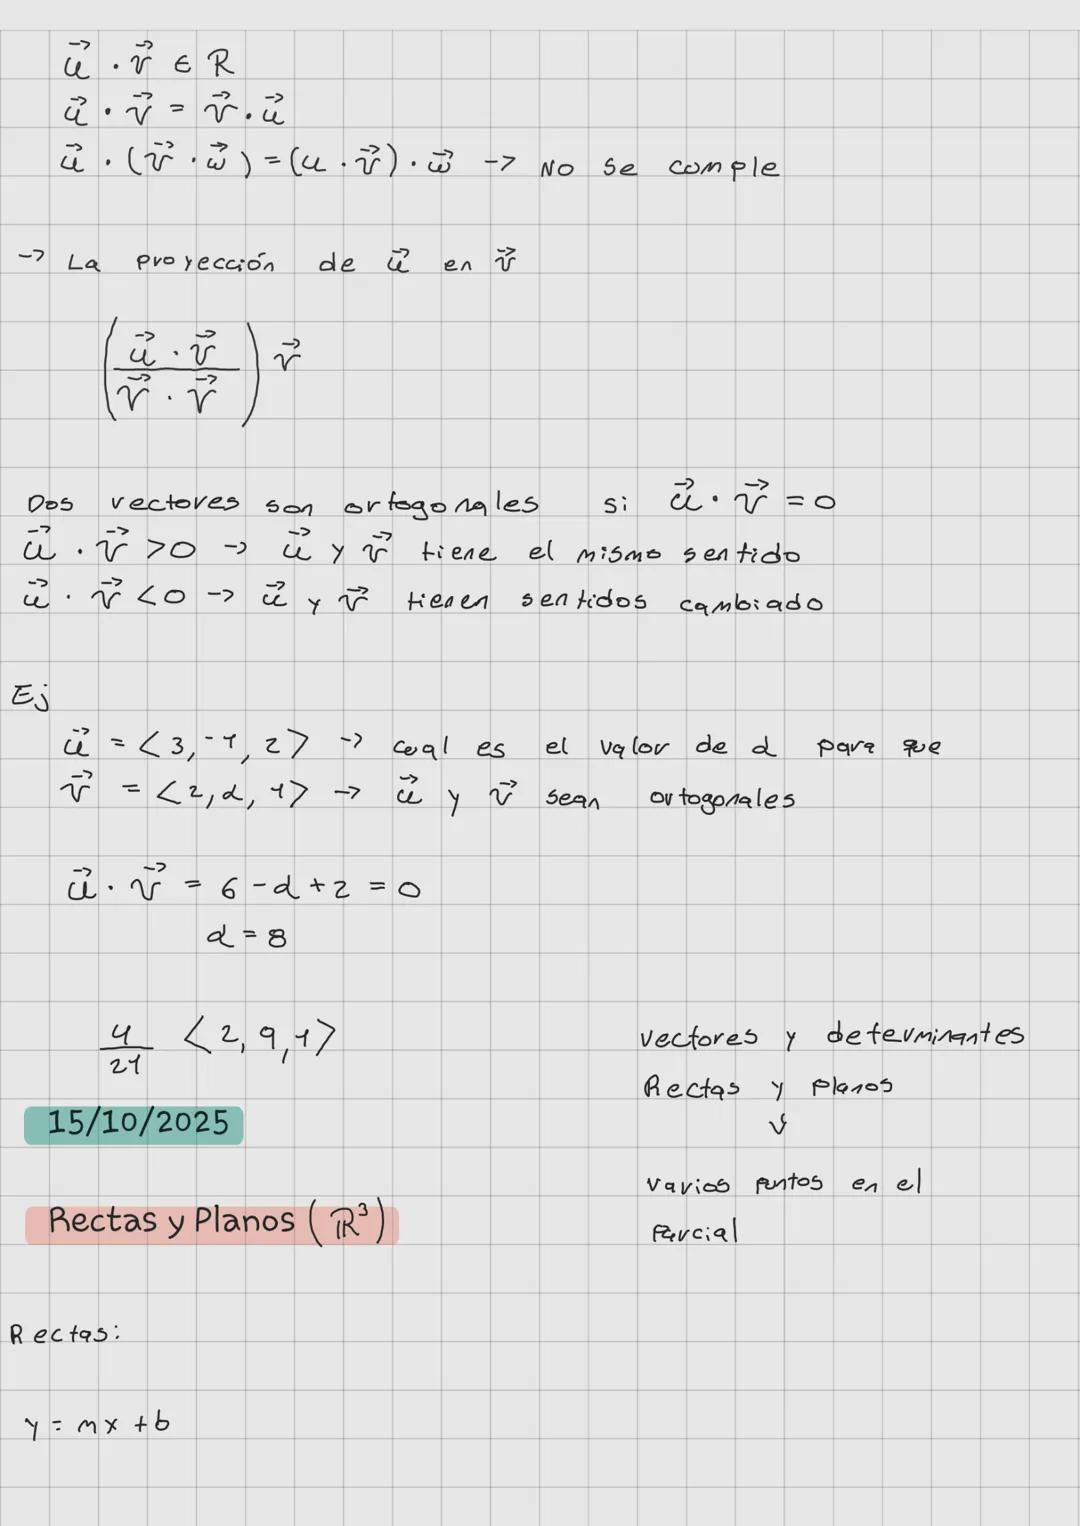 u⃗ · v⃗ ∈ R
u⃗ · v⃗ = v⃗ · u⃗
u⃗ · (v⃗ · w⃗) = (u · v⃗) · w⃗ -> No se comple
-> La proyección de u⃗ en v⃗
(u⃗ · v⃗ / v⃗ · v⃗) v⃗
Dos vectores son ortogonales si u⃗ · v⃗ = 0
u⃗ · v⃗ > 0 -> u⃗ y v⃗ tiene el mismo sentido
u⃗ · v⃗ < 0 -> u⃗ y v⃗ tienen sentidos cambiado
Ej
u⃗ = <3, -1, 2> -> cual es el valor de d para que
v⃗ = <2, d, 1> -> u⃗ y v⃗ sean ortogonales
u⃗ · v⃗ = 6 - d + 2 = 0
d = 8
4/21 <2, 9, 1>
15/10/2025
vectores y determinantes
Rectas y planos
↓
varios puntos en el
parcial
Rectas y Planos (ℝ³)
Rectas:
y = mx + b